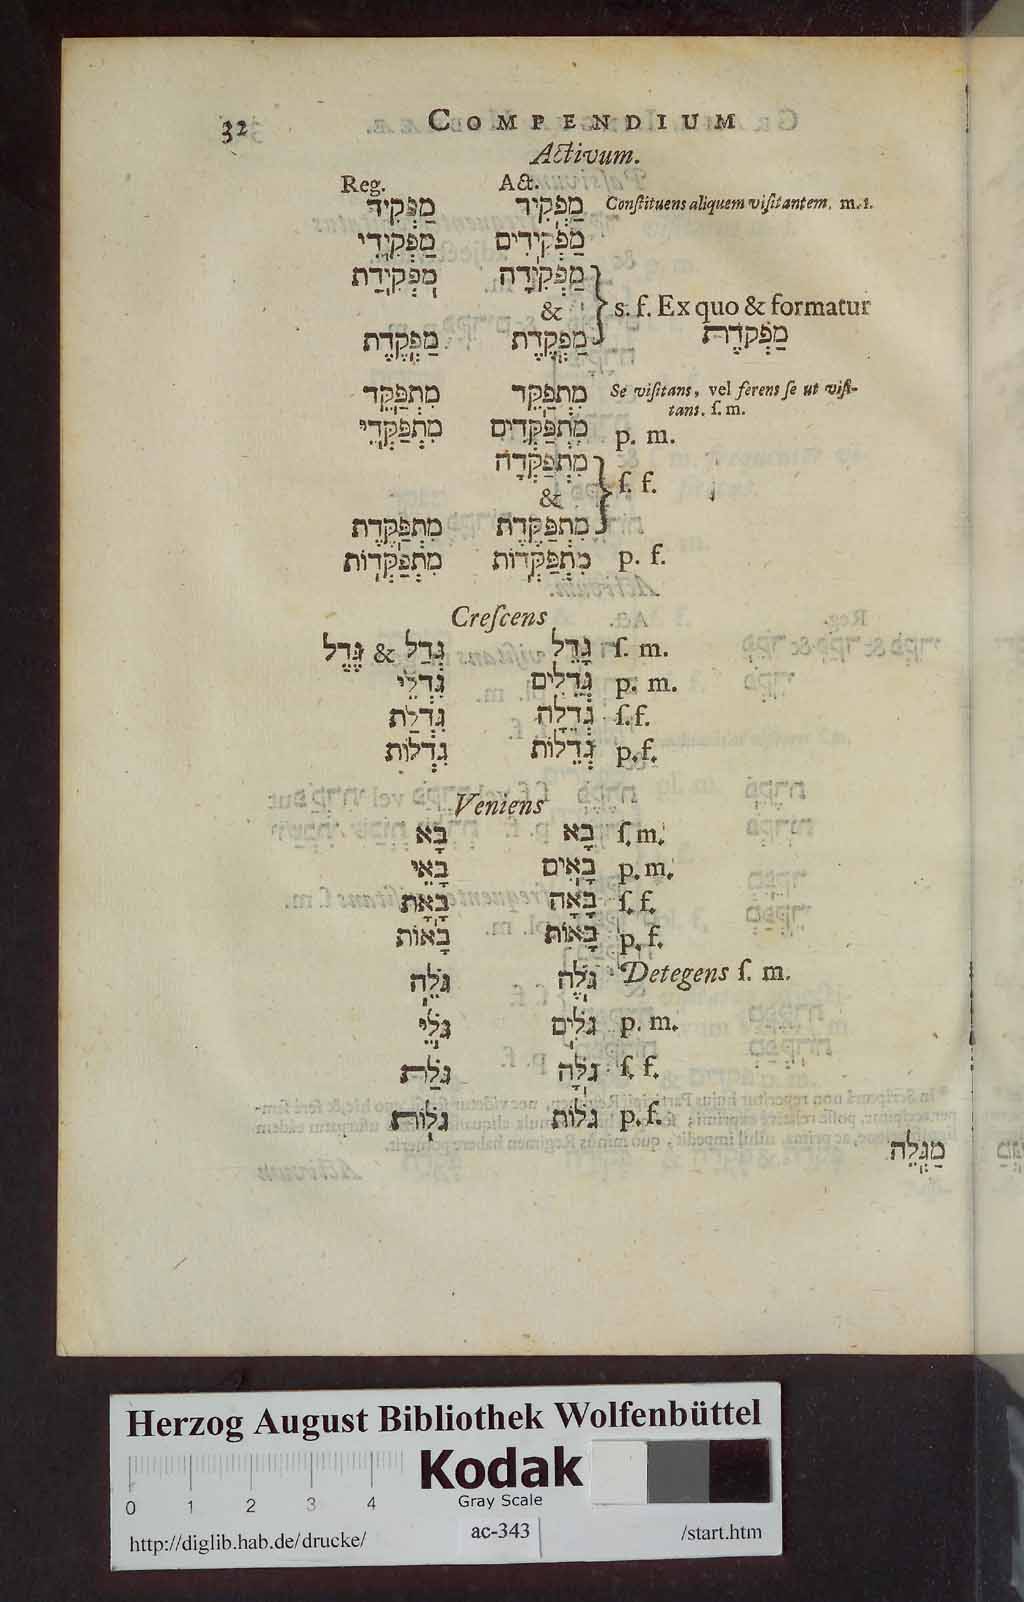 32 COMPENDIUM
Activum.
Reg. Act.
מַפְקִיד מַפְקִיד Conſtituens aliquem viſitantem, m. ſ.
מַפְקִידֵי מַפְקִידִים
מַפְקִידַת מַפְקִידָה
& } s. f. Ex quo & formatur
מַפְקֶדֶת מַפְקֶדֶת מַפְקדת
מִתְפַּקֵּד מִתְפַּקֵּד Se viſitans, vel ferens ſe ut viſi-
tans. ſ. m.
מִתְפַּקְּדֵי מִתְפַּקְּדִים p. m.
מִתְפַּקְּדָה
& } ſ. f.
מִתְפַּקֶּדֶת מִתְפַּקֶּדֶת
מִתְפַּקְּדוֹת מִתְפַּקְּדוֹת p. f.
Creſcens
גֶּדֶל & גְּדַל גָּדֵל ſ. m.
גִּדְלֵי גְּדֵלִים p. m.
גִּדְלַת גְּדֵלָה ſ. f.
גִּדְלוֹת גְּדֵלוֹת p. f.
Veniens
בָּא בָּא ſ. m.
בָּאֵי בָּאִים p. m.
בָּאַת בָּאָה ſ. f.
בָּאוֹת בָּאוֹת p. f.
גֹּלֵה גֹּלֶה Detegens ſ. m.
גֹּלֵי גֹּלִים p. m.
גֹּלַת גֹּלָה ſ. f.
גֹּלוֹת גֹּלוֹת p. f.
מַגְלֵה
Herzog August Bibliothek Wolfenbüttel
Kodak
Gray Scale
0 1 2 3 4
http://diglib.hab.de/drucke/ ac-343 /start.htm